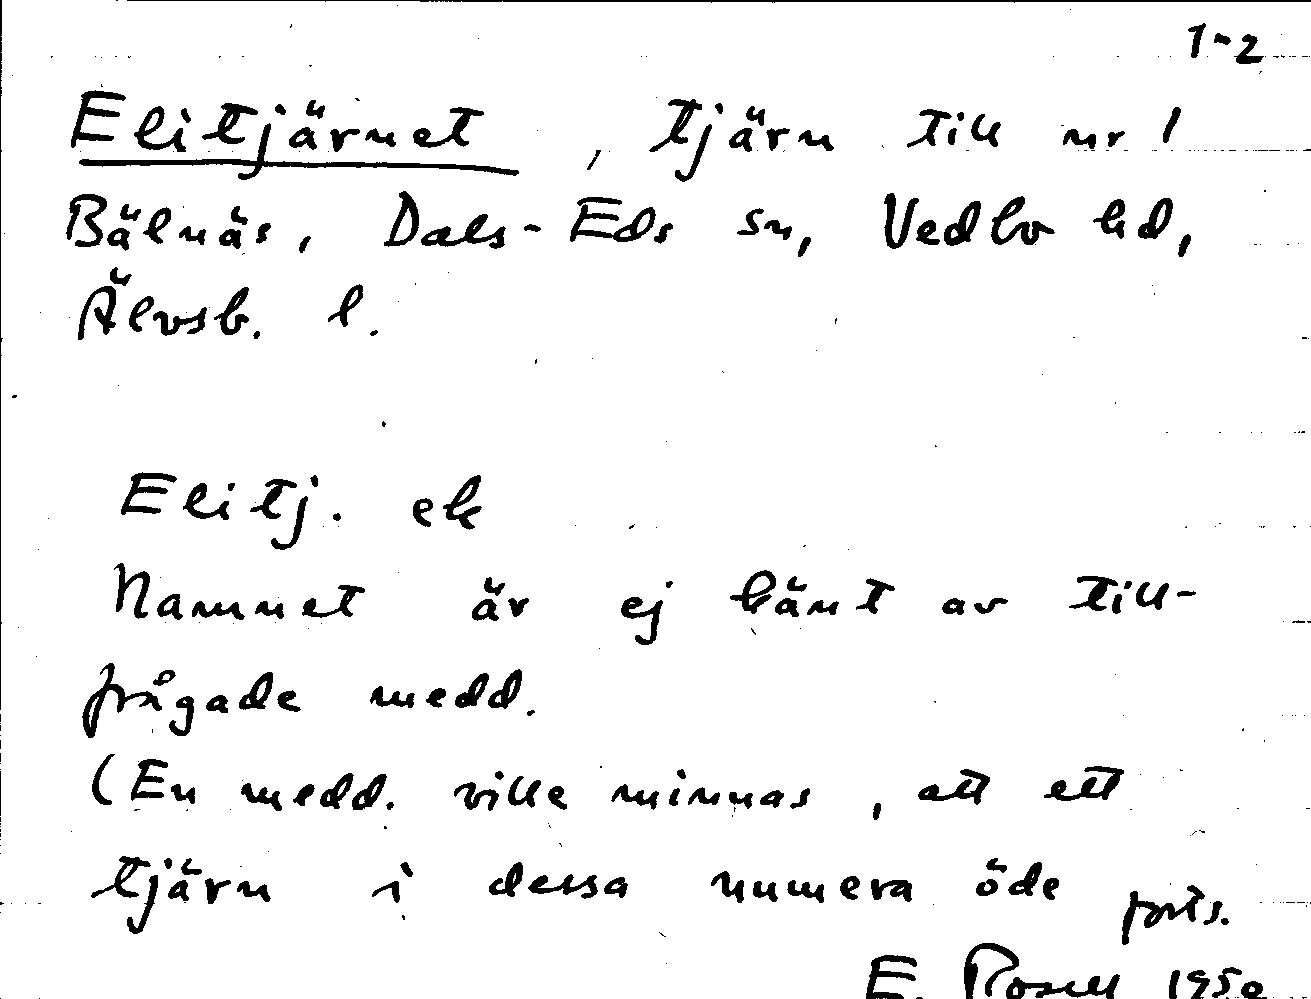 1-2
Elitjärnet, tjärn till nr 1
Bälnäs, Dals-Eds sn, Vedbo hd,
Älvsb. l.
Elitj. ek
Namnet är ej känt av till-
frågade medd.
(En medd. ville minnas, att ett
tjärn i dessa numera öde forts.
E. Rosell 1950